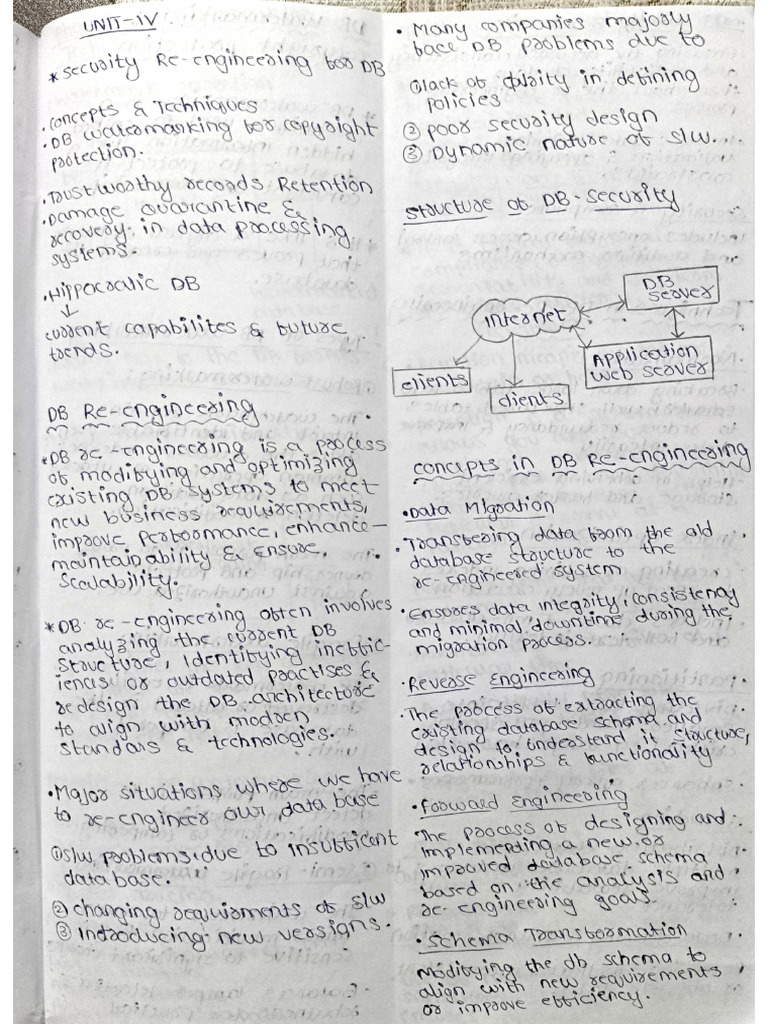 UNIT-IV
* Security Re-engineering for DB
• Concepts & Techniques
• DB watermarking for copyright
protection.
• Trustworthy records Retention
• Damage Quarantine &
recovery in data processing
systems.
• Hippocratic DB
↓
current capabilites & future
trends.
DB Re-engineering
* DB re-engineering is a process
of modifying and optimizing
existing DB systems to meet
new business requirements,
improve performance, enhance-
maintainability & Ensure.
Scalability.
* DB re-engineering often involves
analyzing the current DB
Structure, Identifying ineffic-
iences or outdated practises &
redesign the DB architecture
to align with modern
standars & technologies.
• Major situations where we have
to re-engineer our data base
① S/w problems due to insufficent
data base.
② changing requirments of S/w
③ Introducing new versions.
• Many companies majorly
face DB problems due to
① lack of clarity in defining
policies
② poor security design
③ Dynamic nature of s/w.
Structure of DB-Security
Internet
DB
server
Application
web server
clients
clients
concepts in DB Re-engineering
• Data Migration
• Transfering data from the old
database structure to the
re-engineered system
• Ensures data integrity, consistency
and minimal downtime during the
migration process.
• Reverse Engineering
• The process of extracting the
existing database schema and
design to understand it structure,
relationships & functionality
• Forward Engineering
The process of designing and
implementing a new or
improved database schema
based on the analysis and
re-engineering goals.
• Schema Transformation
Modifying the db schema to
align with new requirements
or improve efficiency.